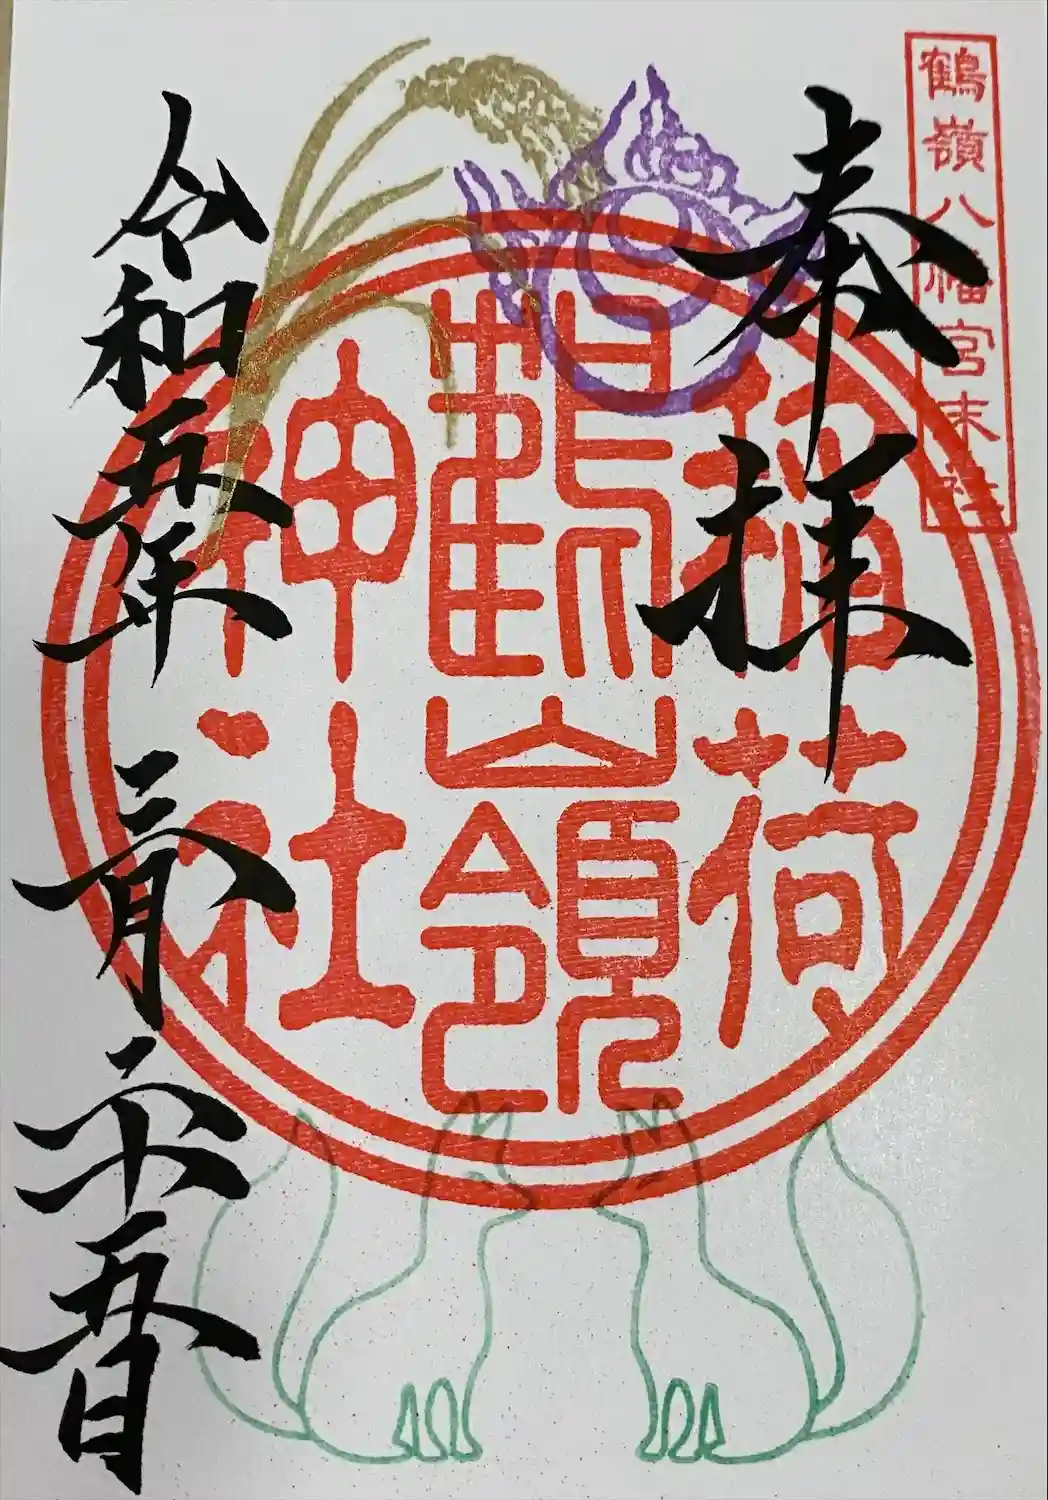 鶴嶺八幡宮末社
奉拝
稲荷
鶴嶺
神社
令和五年三月二十五日